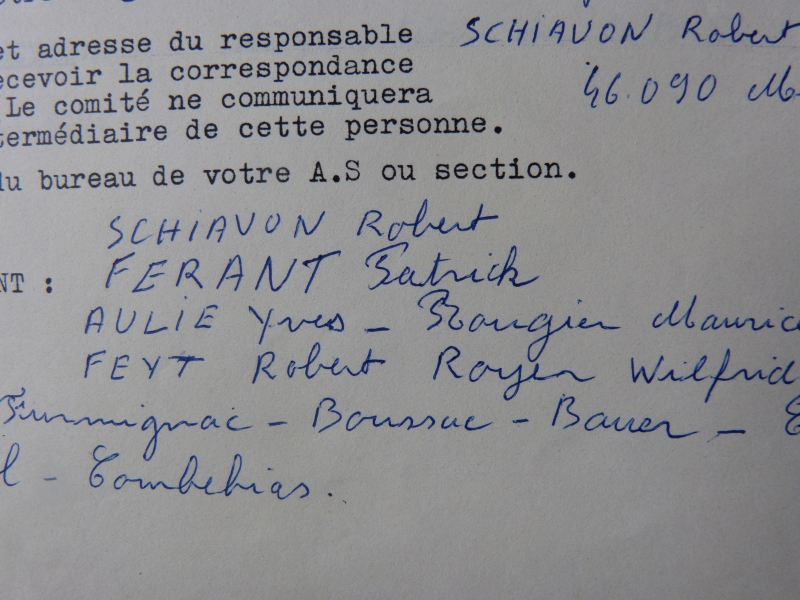 et adresse du responsable SCHIAVON Robert
ecevoir la correspondance
46.090 M
Le comité ne communiquera
termédiaire de cette personne.
du bureau de votre A.S ou section.
SCHIAVON Robert
NT : FERANT Patrick
AULIE Yves - Rougier Maurice
FEYT Robert Royer Wilfrid
Furmignac - Boussac - Bauer -
l - Combebias.